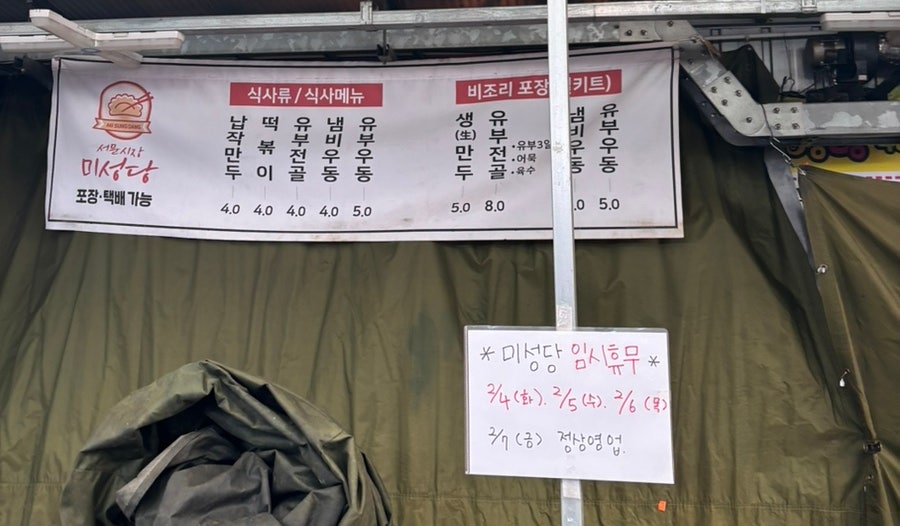 서문시장
미성당
포장·택배 가능
식사류 / 식사메뉴
납작만두 4.0
떡볶이 4.0
유부전골 4.0
냄비우동 4.0
유부우동 5.0
비조리 포장 키트)
생(生)만두 5.0
유부전골 8.0
•유부3알
•어묵
•육수
냄비우동 .0
유부우동 5.0
* 미성당 임시휴무 *
2/4 (화). 2/5 (수). 2/6 (목)
2/7 (금) 정상영업.